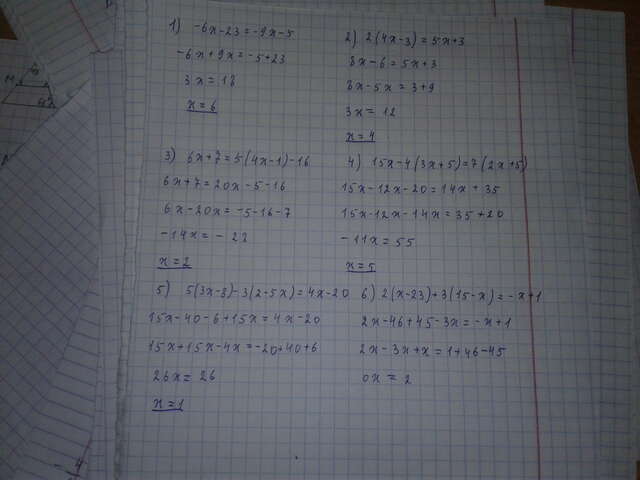 1) -6x-23=-9x-5
-6x+9x=-5+23
3x=18
x=6
2) 2(4x-3)=5x+3
8x-6=5x+3
8x-5x=3+9
3x=12
x=4
3) 6x+7=5(4x-1)-16
6x+7=20x-5-16
6x-20x=-5-16-7
-14x=-28
x=2
4) 15x-4(3x+5)=7(2x+5)
15x-12x-20=14x+35
15x-12x-14x=35+20
-11x=55
x=5
5) 5(3x-8)-3(2-5x)=4x-20
15x-40-6+15x=4x-20
15x+15x-4x=-20+40+6
26x=26
x=1
6) 2(x-23)+3(15-x)=-x+1
2x-46+45-3x=-x+1
2x-3x+x=1+46-45
0x=2